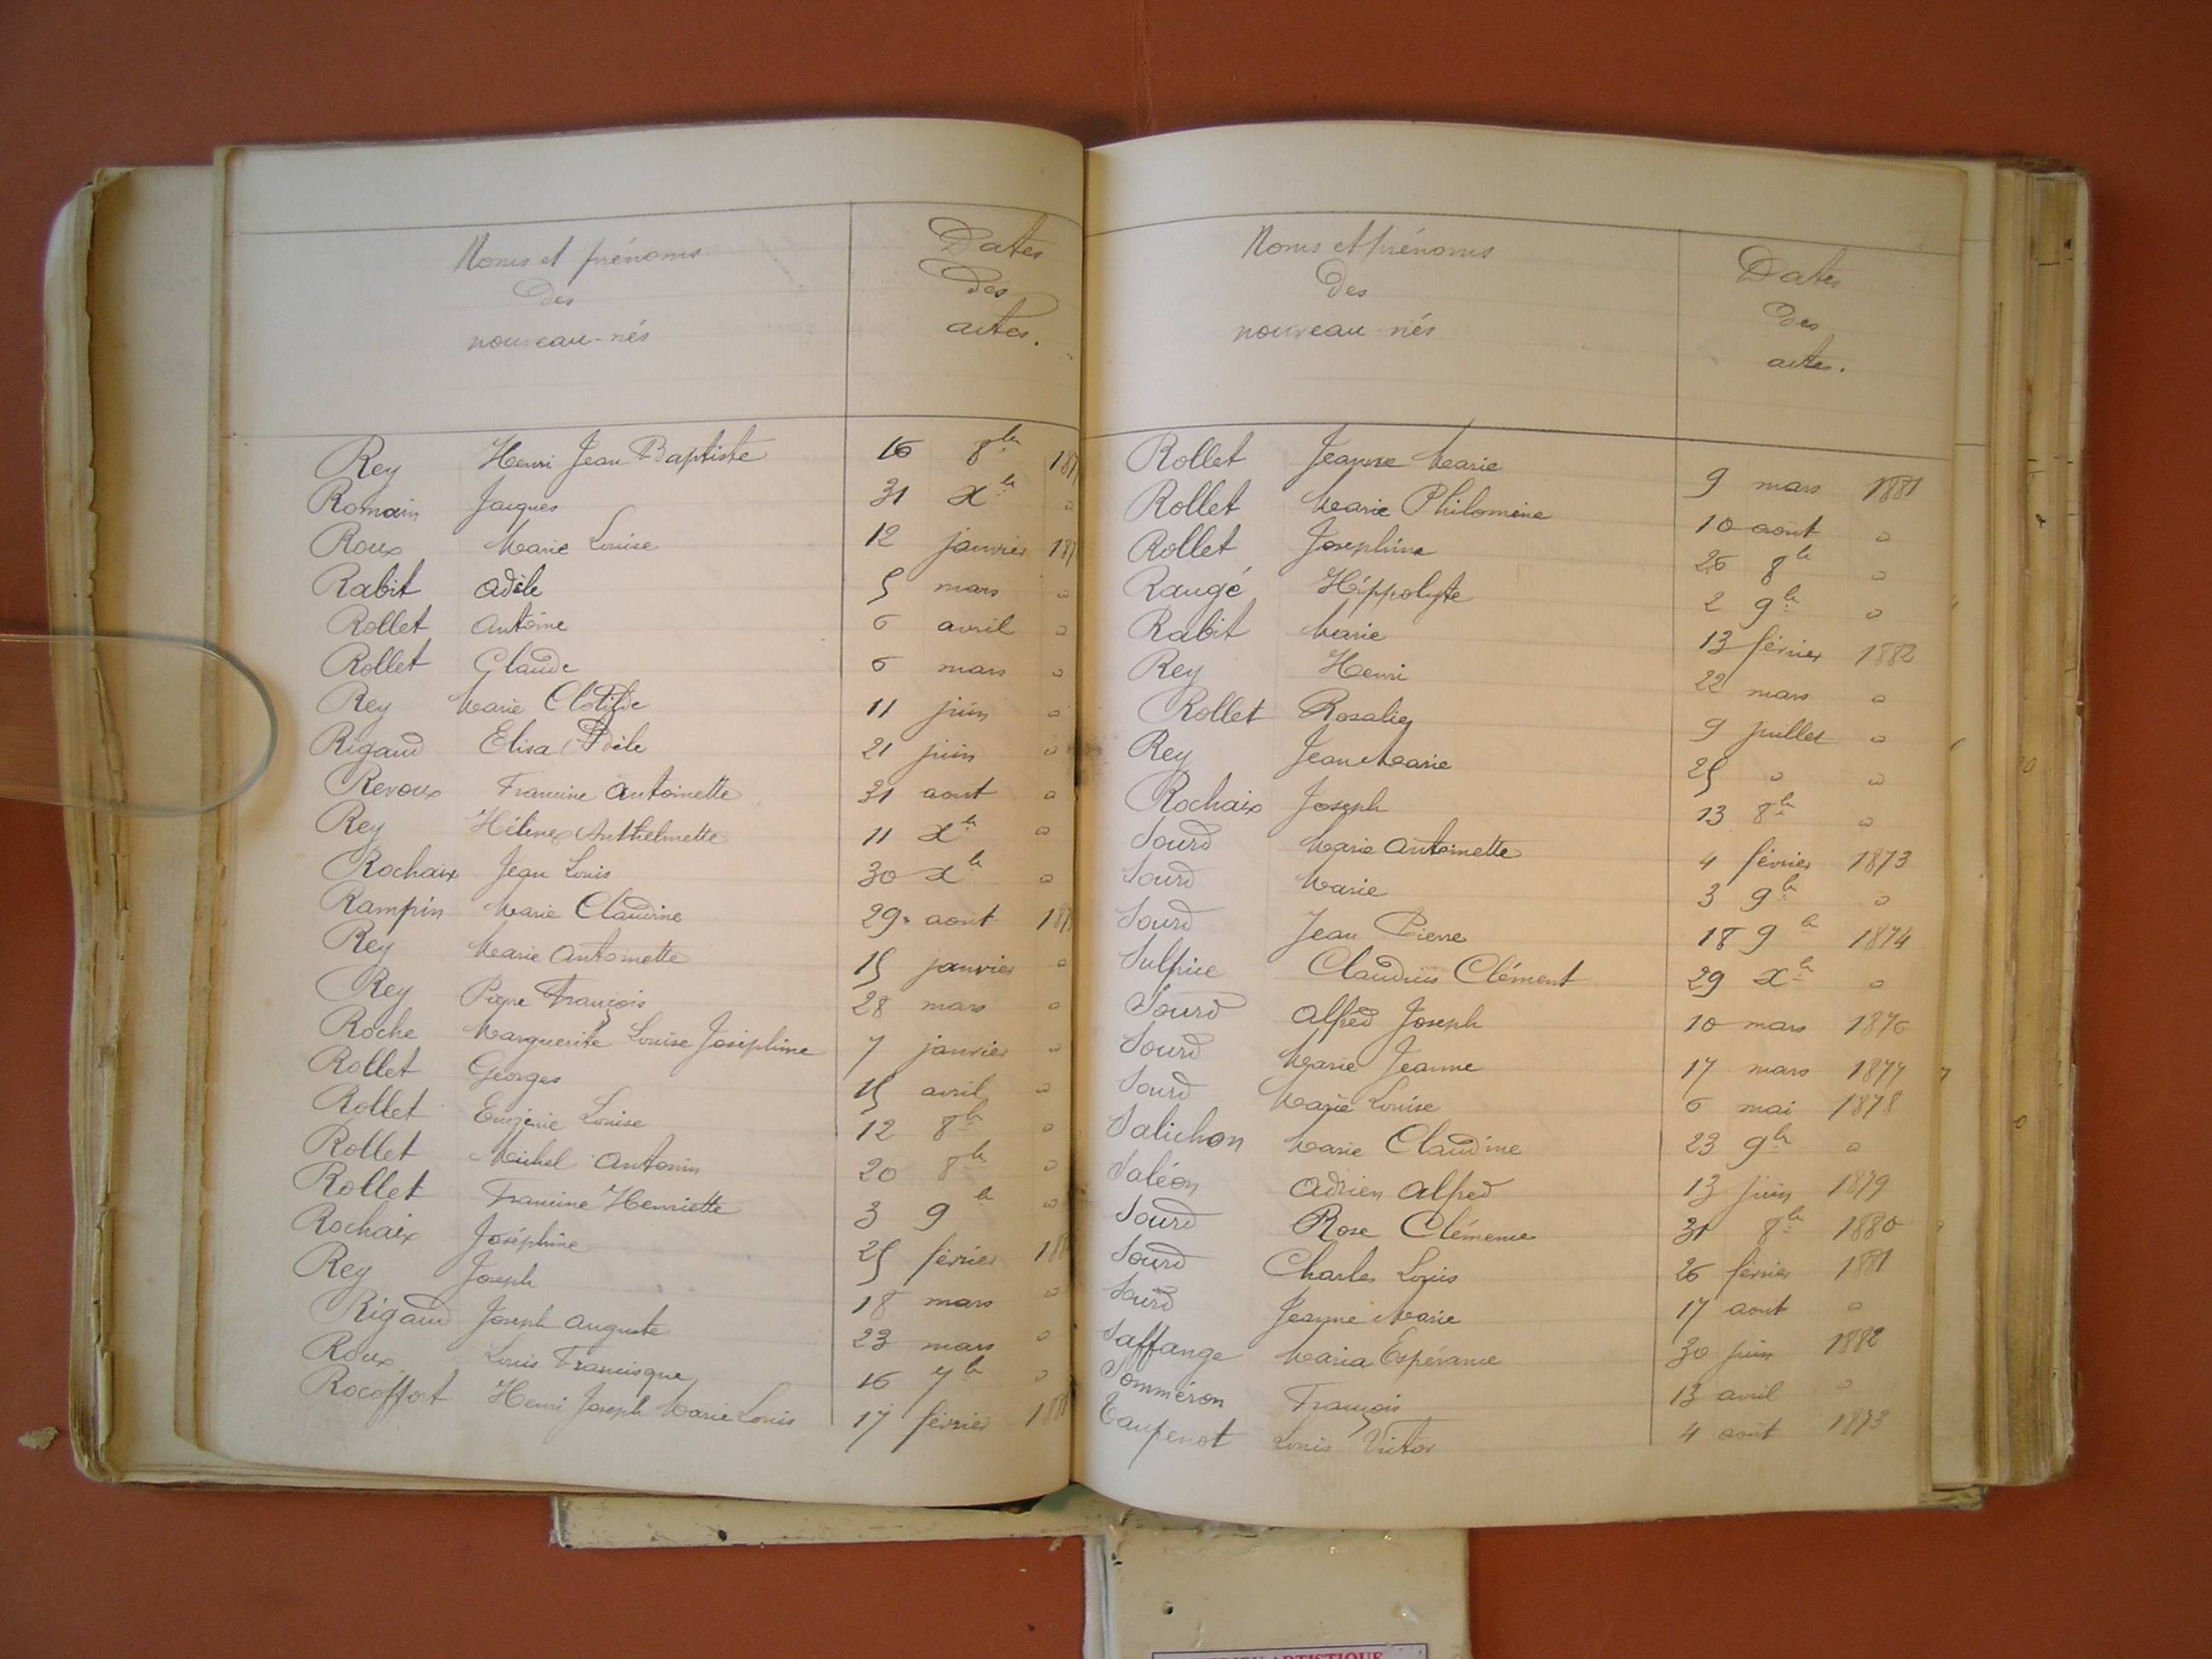 Noms et prénoms
des
nouveau-nés
Dates
des
actes.
Rey Henri Jean Baptiste 16 8bre 187
Romain Jacques 31 Xbre "
Roux Marie Louise 12 janvier 187
Rabit Adèle 5 mars "
Rollet Antoine 6 avril "
Rollet Claude 6 mars "
Rey Marie Clotilde 11 juin "
Rigaud Elisa Adèle 21 juin "
Revoux Francine Antoinette 31 aout "
Rey Hélène Anthelmette 11 Xbre "
Rochaix Jean Louis 30 Xbre "
Rampin Marie Claudine 29 août 187
Rey Marie Antoinette 15 janvier "
Rey Pierre François 28 mars "
Roche Marguerite Louise Joséphine 7 janvier "
Rollet Georges 15 avril "
Rollet Eugénie Louise 12 8bre "
Rollet Michel Antonin 20 8bre "
Rollet Francine Henriette 3 9bre "
Rochaix Joséphine 25 février 188
Rey Joseph 18 mars "
Rigaud Joseph Auguste 23 mars "
Roux Louis Francisque 16 7bre "
Rocoffort Henri Joseph Marie Louis 17 février 188
Noms et prénoms
des
nouveau nés
Dates
des
actes.
Rollet Jeanne Marie 9 mars 1881
Rollet Marie Philomène 10 août "
Rollet Josephine 26 8bre "
Raugé Hippolyte 2 9bre "
Rabit Marie 13 février 1882
Rey Henri 22 mars "
Rollet Rosalie 9 juillet "
Rey Jean Marie 25 " "
Rochaix Joseph 13 8bre "
Sourd Marie Antoinette 4 février 1873
Sourd Marie 3 9bre "
Sourd Jean Pierre 18 9bre 1874
Sulpice Claudius Clément 29 Xbre "
Sourd Alfred Joseph 10 mars 1876
Sourd Marie Jeanne 17 mars 1877
Sourd Marie Louise 6 mai 1878
Salichon Marie Claudine 23 9bre "
Saléon Adrien Alfred 13 juin 1879
Sourd Rose Clémence 31 8bre 1880
Sourd Charles Louis 26 février 1881
Sourd Jeanne Marie 17 aout "
Saffange Maria Espérance 30 juin 1882
Somméron François 13 avril "
Taupenot Louis Victor 4 août 1873
ARTISTIQUE